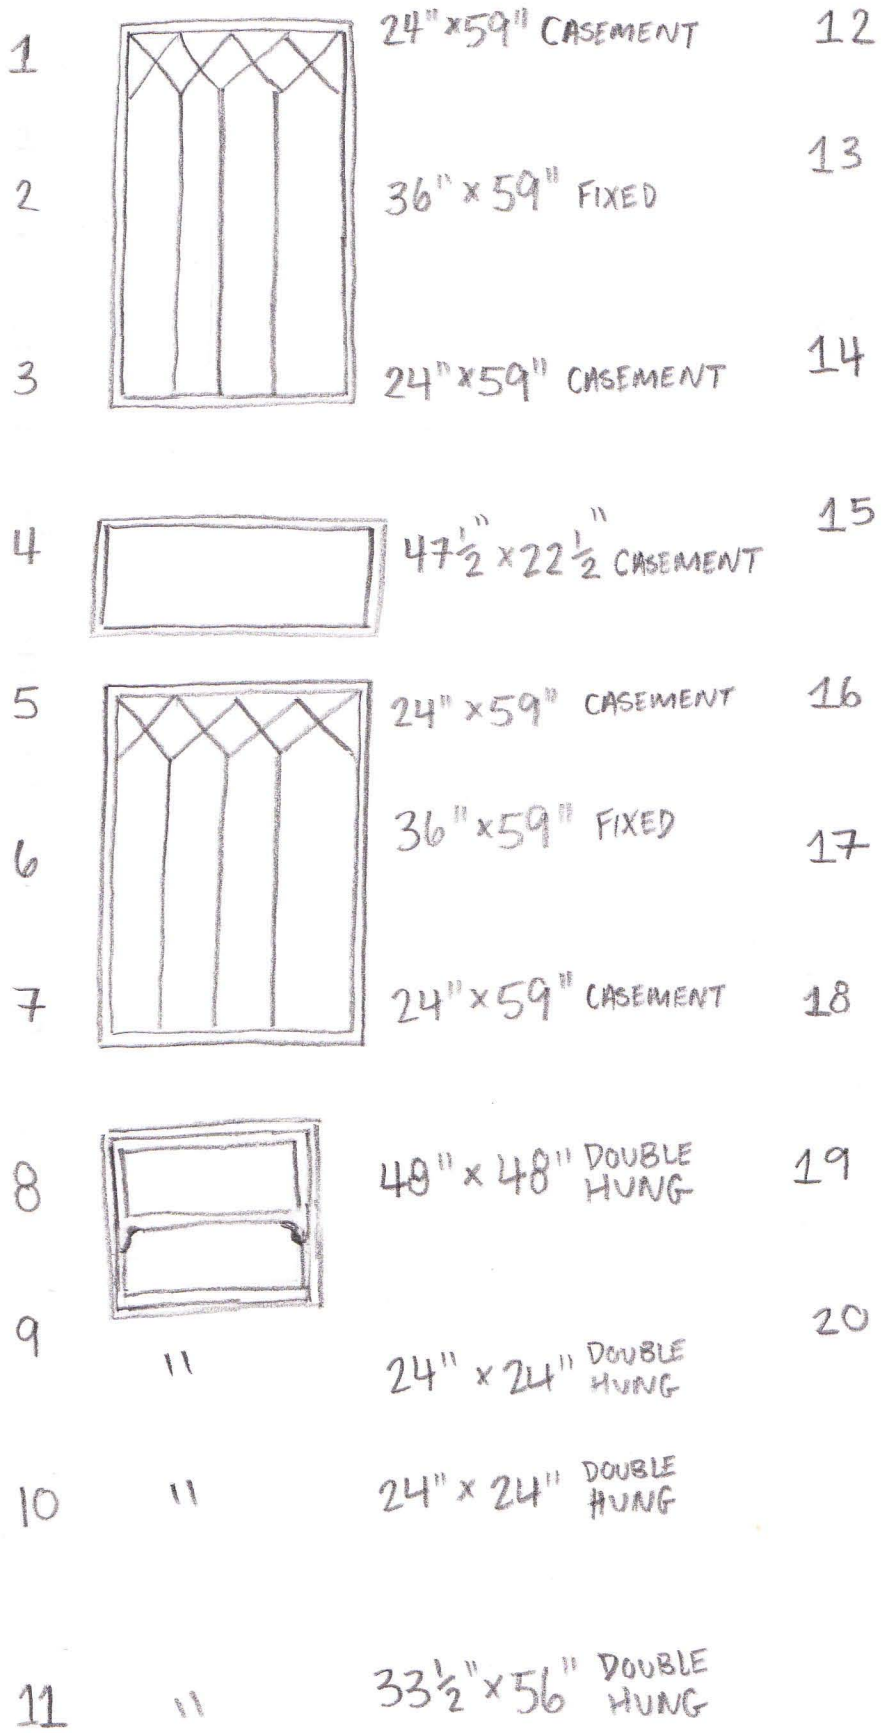 1 24" x 59" CASEMENT 12
2 36" x 59" FIXED 13
3 24" x 59" CASEMENT 14
4 47 1/2" x 22 1/2" CASEMENT 15
5 24" x 59" CASEMENT 16
6 36" x 59" FIXED 17
7 24" x 59" CASEMENT 18
8 48" x 48" DOUBLE HUNG 19
9 " 24" x 24" DOUBLE HUNG 20
10 " 24" x 24" DOUBLE HUNG
11 " 33 1/2" x 56" DOUBLE HUNG